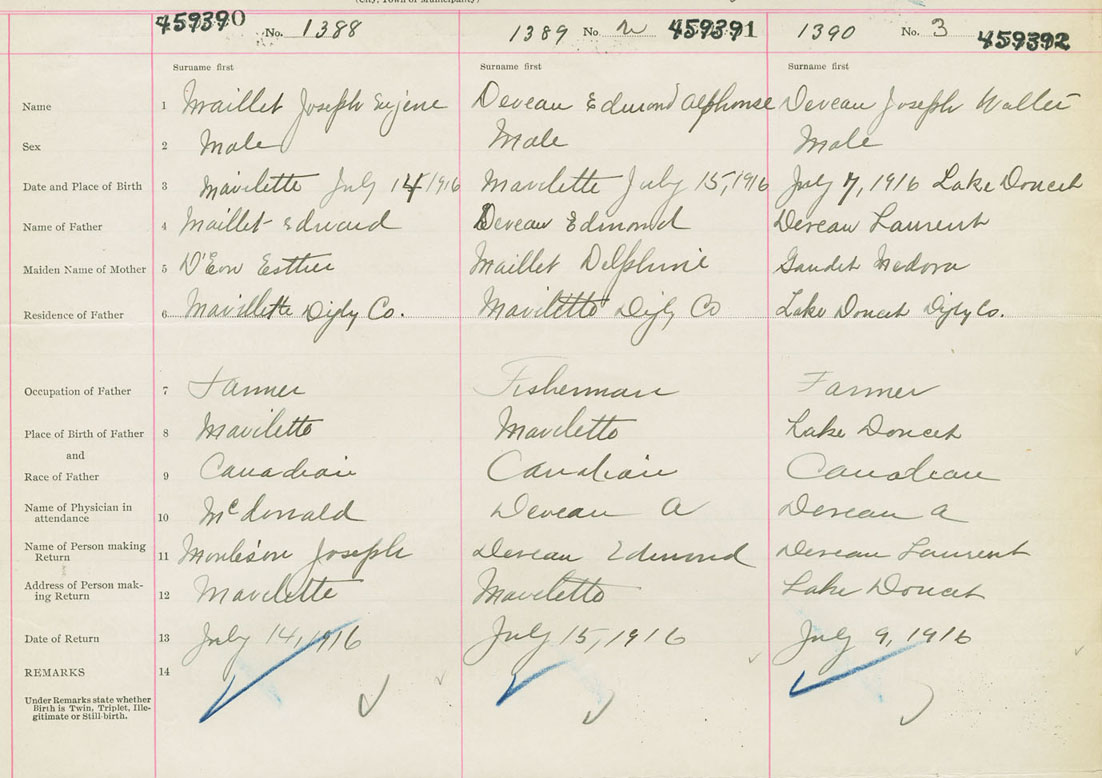 (City, Town or Municipality)
459390 No. 1388 1389 No 2 459391 1390 No. 3 459392
Surname first Surname first Surname first
Name 1 Maillet Joseph Eugene Deveau Edmond Alphonse Deveau Joseph Walter
Sex 2 Male Male Male
Date and Place of Birth 3 Mavilette July 14 1916 Mavilette July 15, 1916 July 7, 1916 Lake Doucet
Name of Father 4 Maillet Edward Deveau Edmond Deveau Laurent
Maiden Name of Mother 5 D'Eon Esther Maillet Delphine Gaudet Medora
Residence of Father 6 Mavillette Digby Co. Maviletto Digby Co Lake Doucet Digby Co.
Occupation of Father 7 Farmer Fisherman Farmer
Place of Birth of Father 8 Maviletto Maviletto Lake Doucet
and
Race of Father 9 Canadian Canadian Canadian
Name of Physician in
attendance 10 McDonald Deveau A Deveau A
Name of Person making
Return 11 Joseph Deveau Edmond Deveau Laurent
Address of Person mak-
ing Return 12 Mavilette Maviletto Lake Doucet
Date of Return 13 July 14, 1916 July 15, 1916 July 9, 1916
REMARKS 14
Under Remarks state whether
Birth is Twin, Triplet, Ille-
gitimate or Still-birth.